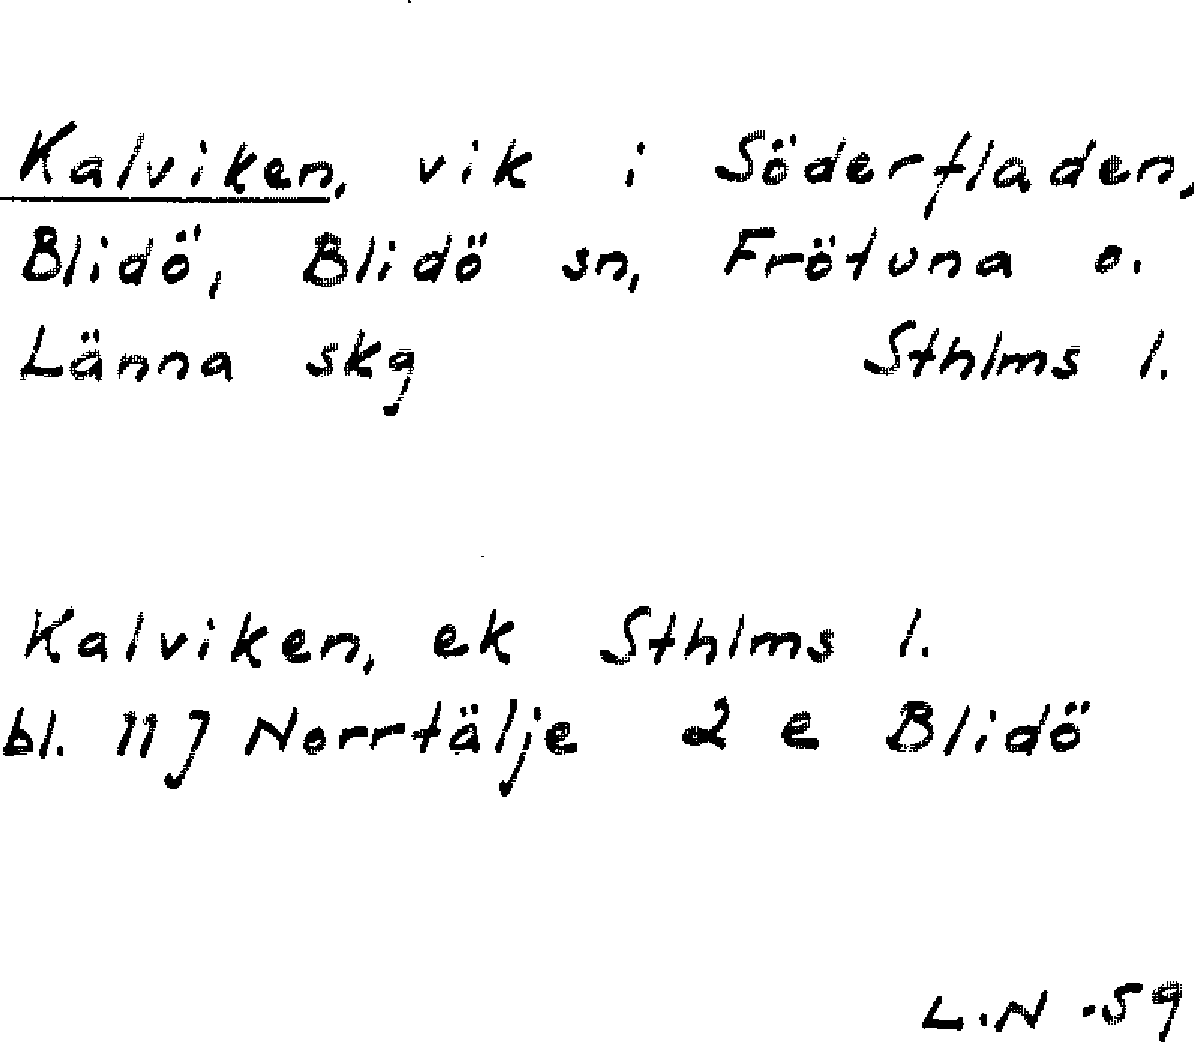 Kalviken, vik i Söderfladen,
Blidö, Blidö sn, Frötuna o.
Länna skg Sthlms l.
Kalviken, ek Sthlms l.
bl. 11 J Norrtälje 2 e Blidö
L.N -59